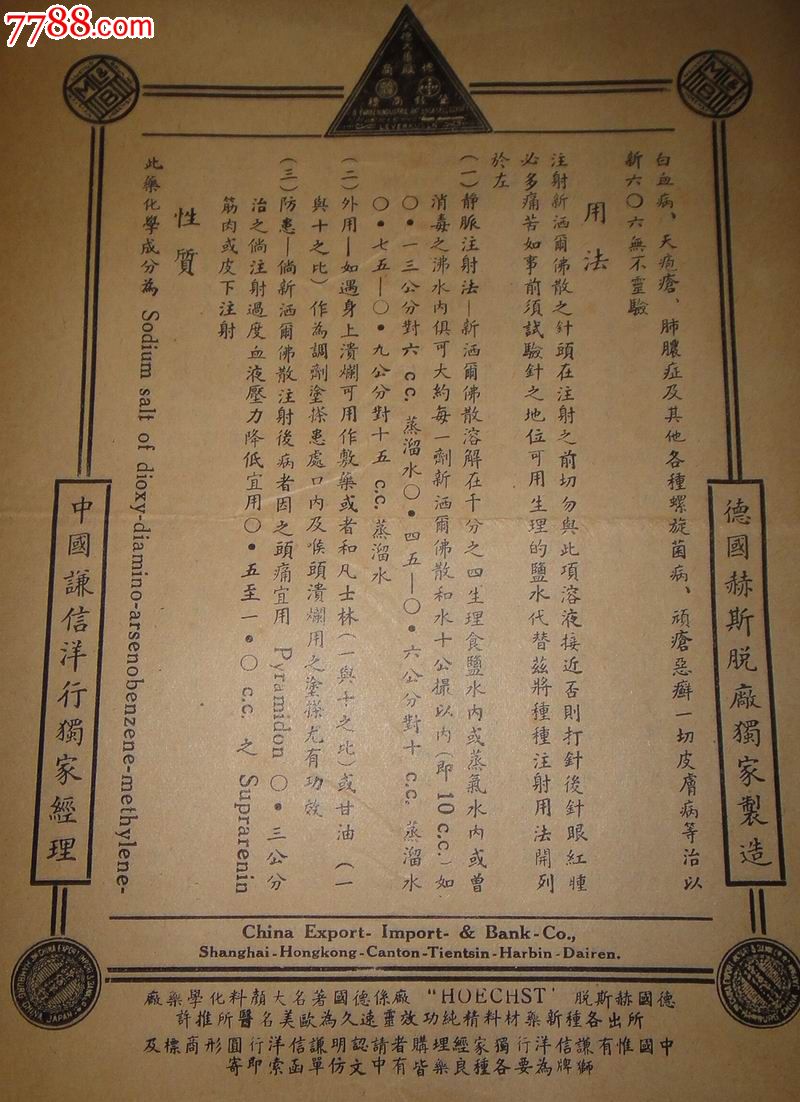 7788.com
德國赫斯脫廠獨家製造
白血病、天疱瘡、肺膿症及其他各種螺旋菌病、頑瘡惡癬一切皮膚病等治以
新六〇六無不靈驗
用法
注射新洒爾佛散之針頭在注射之前切勿與此項溶液接近否則打針後針眼紅腫
必多痛苦如事前須試驗針之地位可用生理的鹽水代替茲將種種注射用法開列
於左
(一)靜脈注射法—新洒爾佛散溶解在千分之四生理食鹽水內或蒸氣水內或曾
消毒之沸水內俱可大約每一劑新洒爾佛散和水十公撮以內(即10 c.c.)如
〇•一三公分對六 c.c. 蒸溜水〇•四五—〇•六公分對十 c.c. 蒸溜水
〇•七五—〇•九公分對十五 c.c. 蒸溜水
(二)外用—如遇身上潰爛可用作敷藥或者和凡士林(一與十之比)或甘油(一
與十之比)作為調劑塗搽患處口內及喉頭潰爛用之塗搽尤有功效
(三)防患—倘新洒爾佛散注射後病者因之頭痛宜用 Pyramidon 〇•三公分
治之倘注射過度血液壓力降低宜用〇•五至一•〇 c.c. 之 Suprarenin
筋肉或皮下注射
性質
此藥化學成分為 Sodium salt of dioxy-diamino-arsenobenzene-methylene-
中國謙信洋行獨家經理
China Export- Import- & Bank-Co.,
Shanghai-Hongkong-Canton-Tientsin-Harbin-Dairen.
德國赫斯脫 "HOECHST" 廠係德國著名大顏料化學藥廠
所出各種新藥材料精純功效靈速久為歐美名醫所推許
中國惟有謙信洋行獨家經理購者請認明謙信洋行圓形商標及
獅牌為要各種良藥皆有中文仿單函索即寄